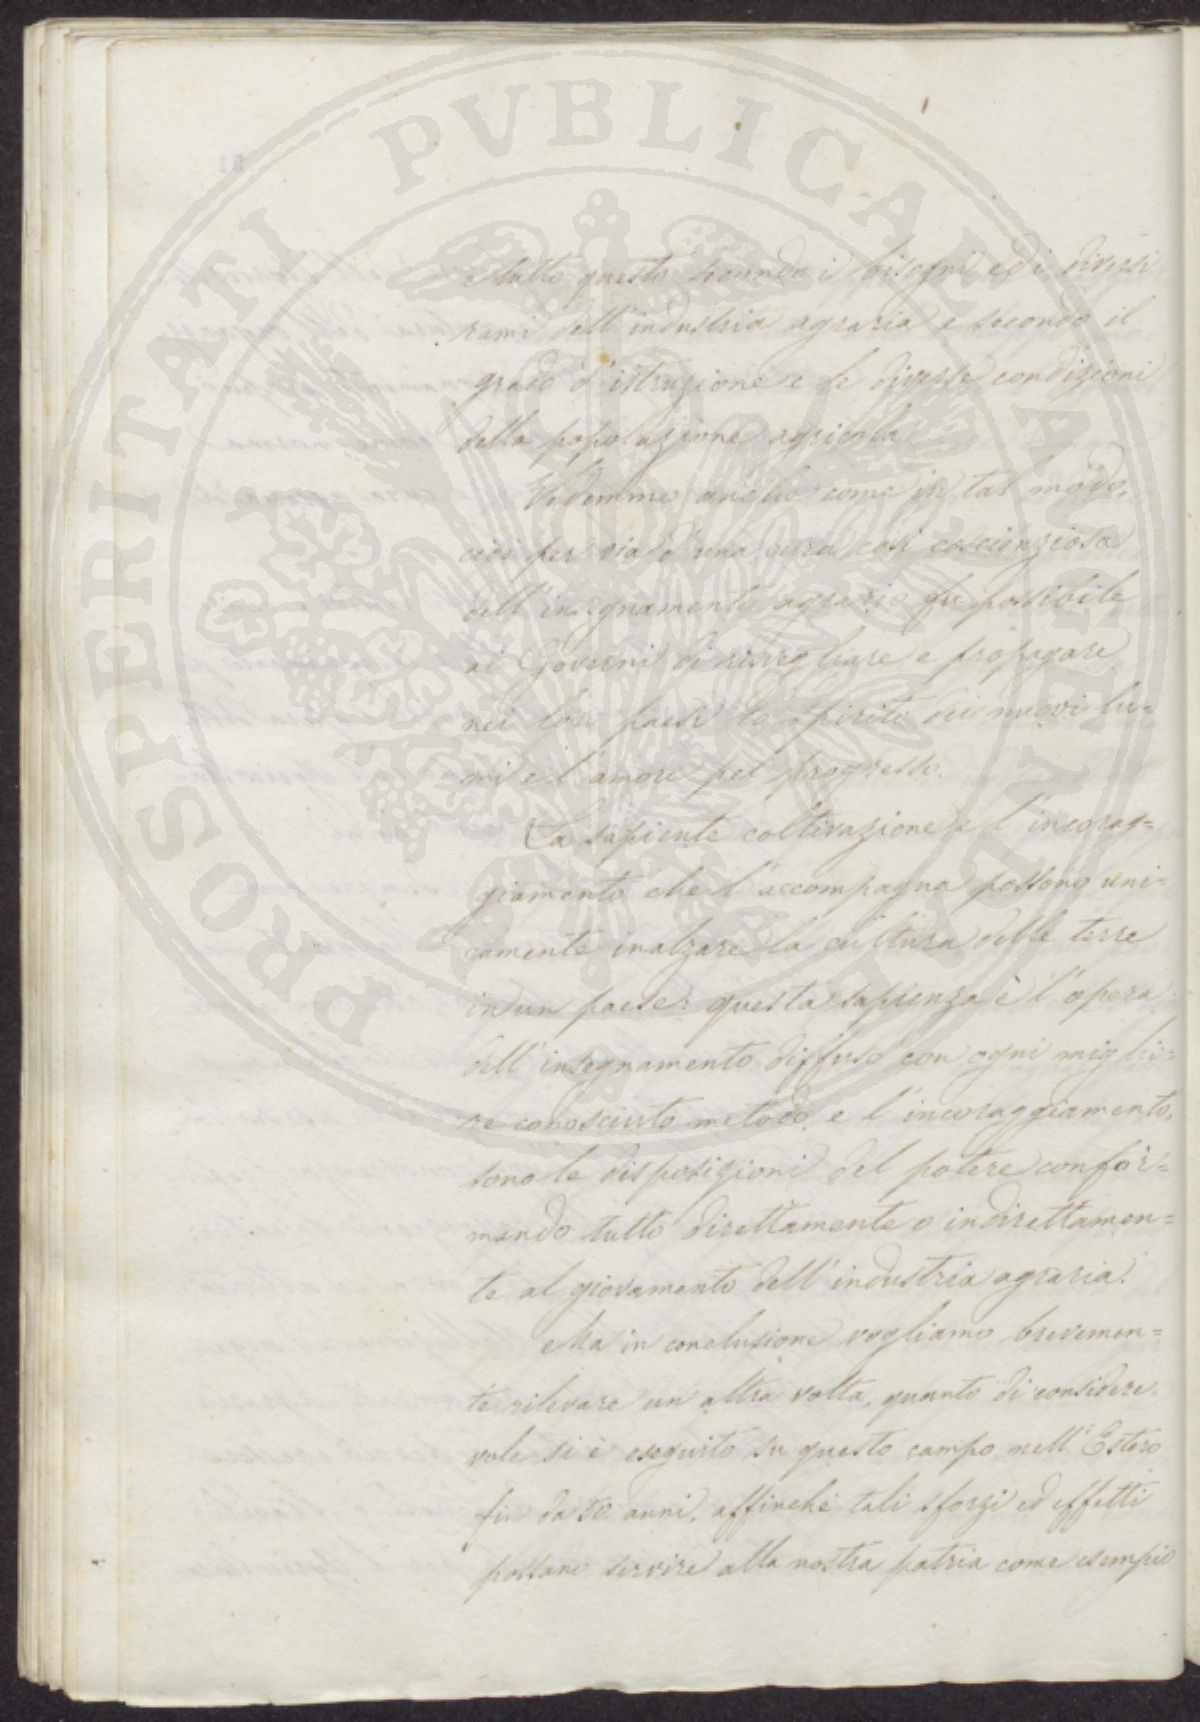 PROSPERITATI PUBLICAE AUGENDAE
e tutto questo secondo i bisogni ed i diversi
rami dell'industria agraria e secondo il
grado d'istruzione e le diverse condizioni
della popolazione agricola.
Vedemmo anche come in tal modo,
cioè per via d'una cura così coscienziosa
dell'insegnamento agrario fu possibile
ai Governi di risvegliare e propagare
nei loro paesi lo spirito dei nuovi lu=
mi e l'amore pel progresso.
La sapiente coltivazione e l'incorag=
giamento che l'accompagna possono uni=
camente inalzare la cultura delle terre
in un paese: questa sapienza è l'opera
dell'insegnamento diffuso con ogni miglio=
re conosciuto metodo, e l'incoraggiamento,
sono le disposizioni del potere confor=
mando tutto direttamente o indirettamen=
te al giovamento dell'industria agraria.
Ma in conclusione vogliamo brevemen=
te rilevare un altra volta, quanto di considere
vole si è eseguito su questo campo nell'Estero
fin da 50 anni, affinchè tali sforzi ed effetti
possano servire alla nostra patria come esempio